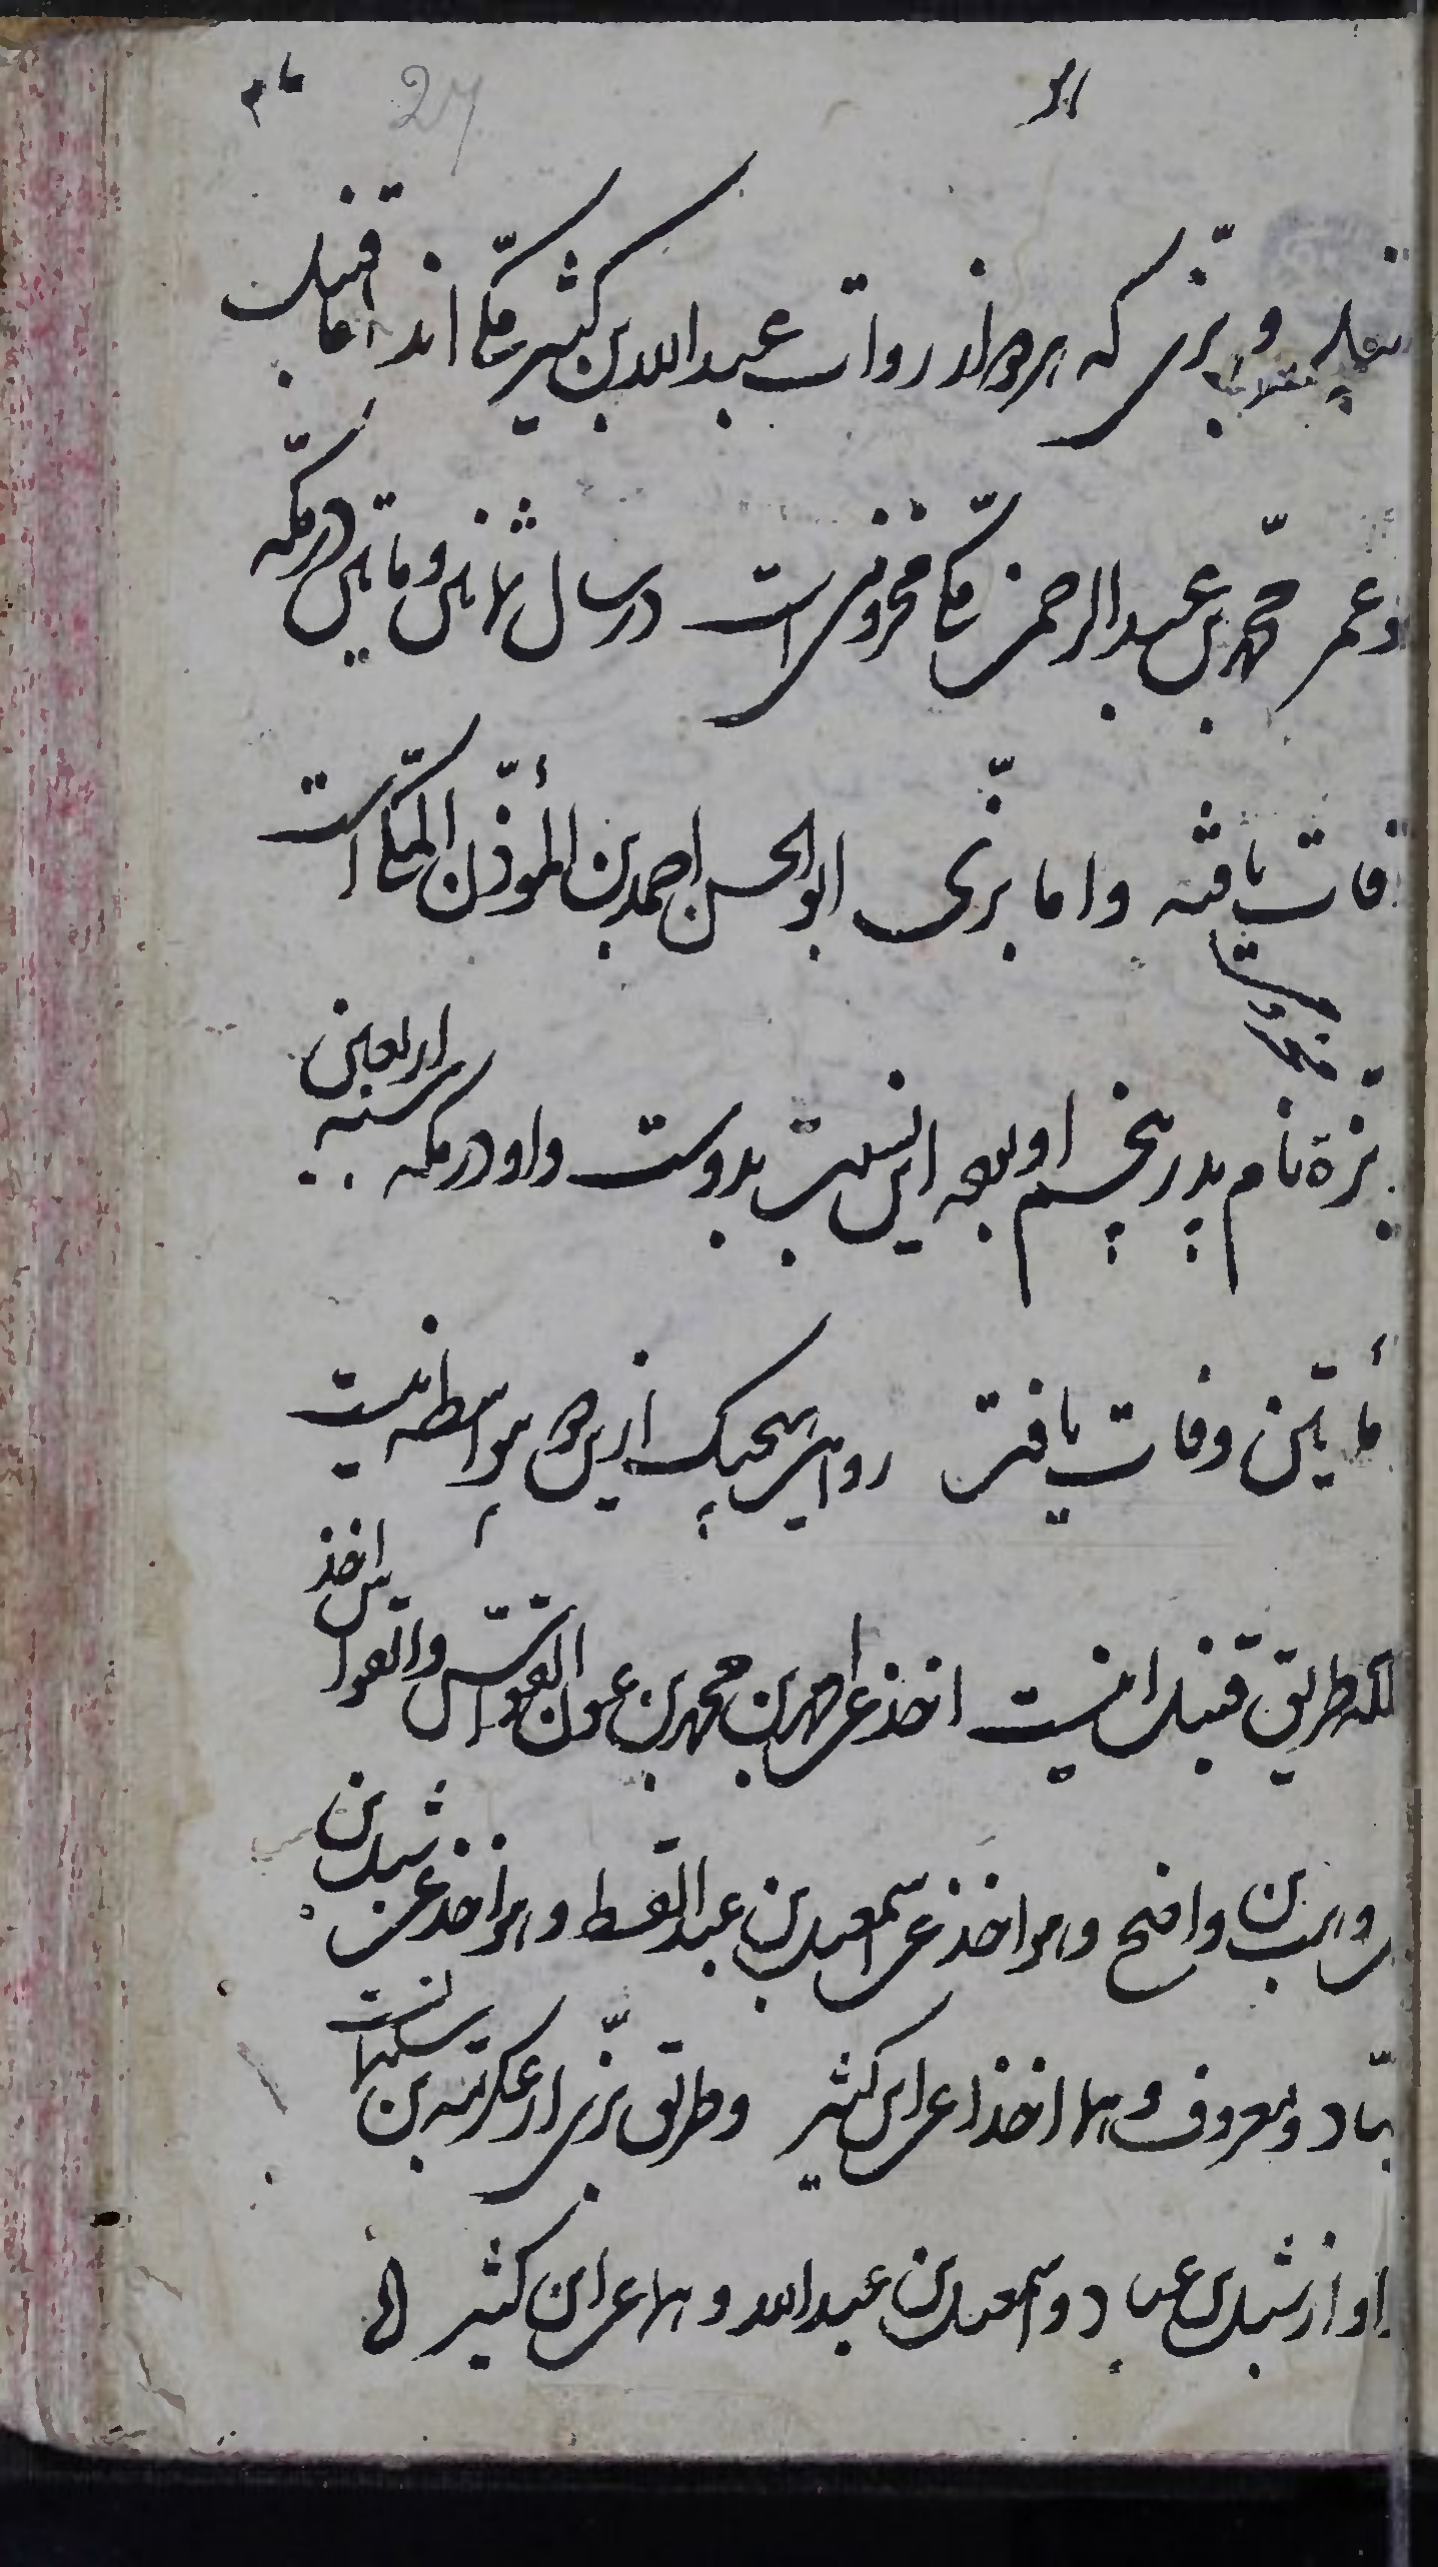 27
قنبل و بزّی که هر دو از روات عبدالله بن کثیر مکّی اند اما قنبل
عمر محمّد بن عبدالرحمن مکّی مخزومی است در سال ثمانین و مایتین در مکّه
وفات یافته و اما بزّی ابوالحسن احمد بن المؤذّن المکّی است
بزة نام پدر پنجم او بود این نسبت بدوست و او در مکه سنه اربعین
مأیتین وفات یافت روایت هیچیک ازین دو بواسطه نیست
بلکه طریق قنبل اینست اخذ عن احمد بن محمد بن عون القوّاس والقواس اخذ
وهب بن واضح و هو اخذ عن اسمعیل بن عبدالقسط و هو اخذ عن شبل بن
عبّاد و معروف و هما اخذا عن ابن کثیر و طریق بزّی از عکرمه بن سلیمانست
و او از شبل بن عباد و اسمعیل بن عبدالله و هما عن ابن کثیر